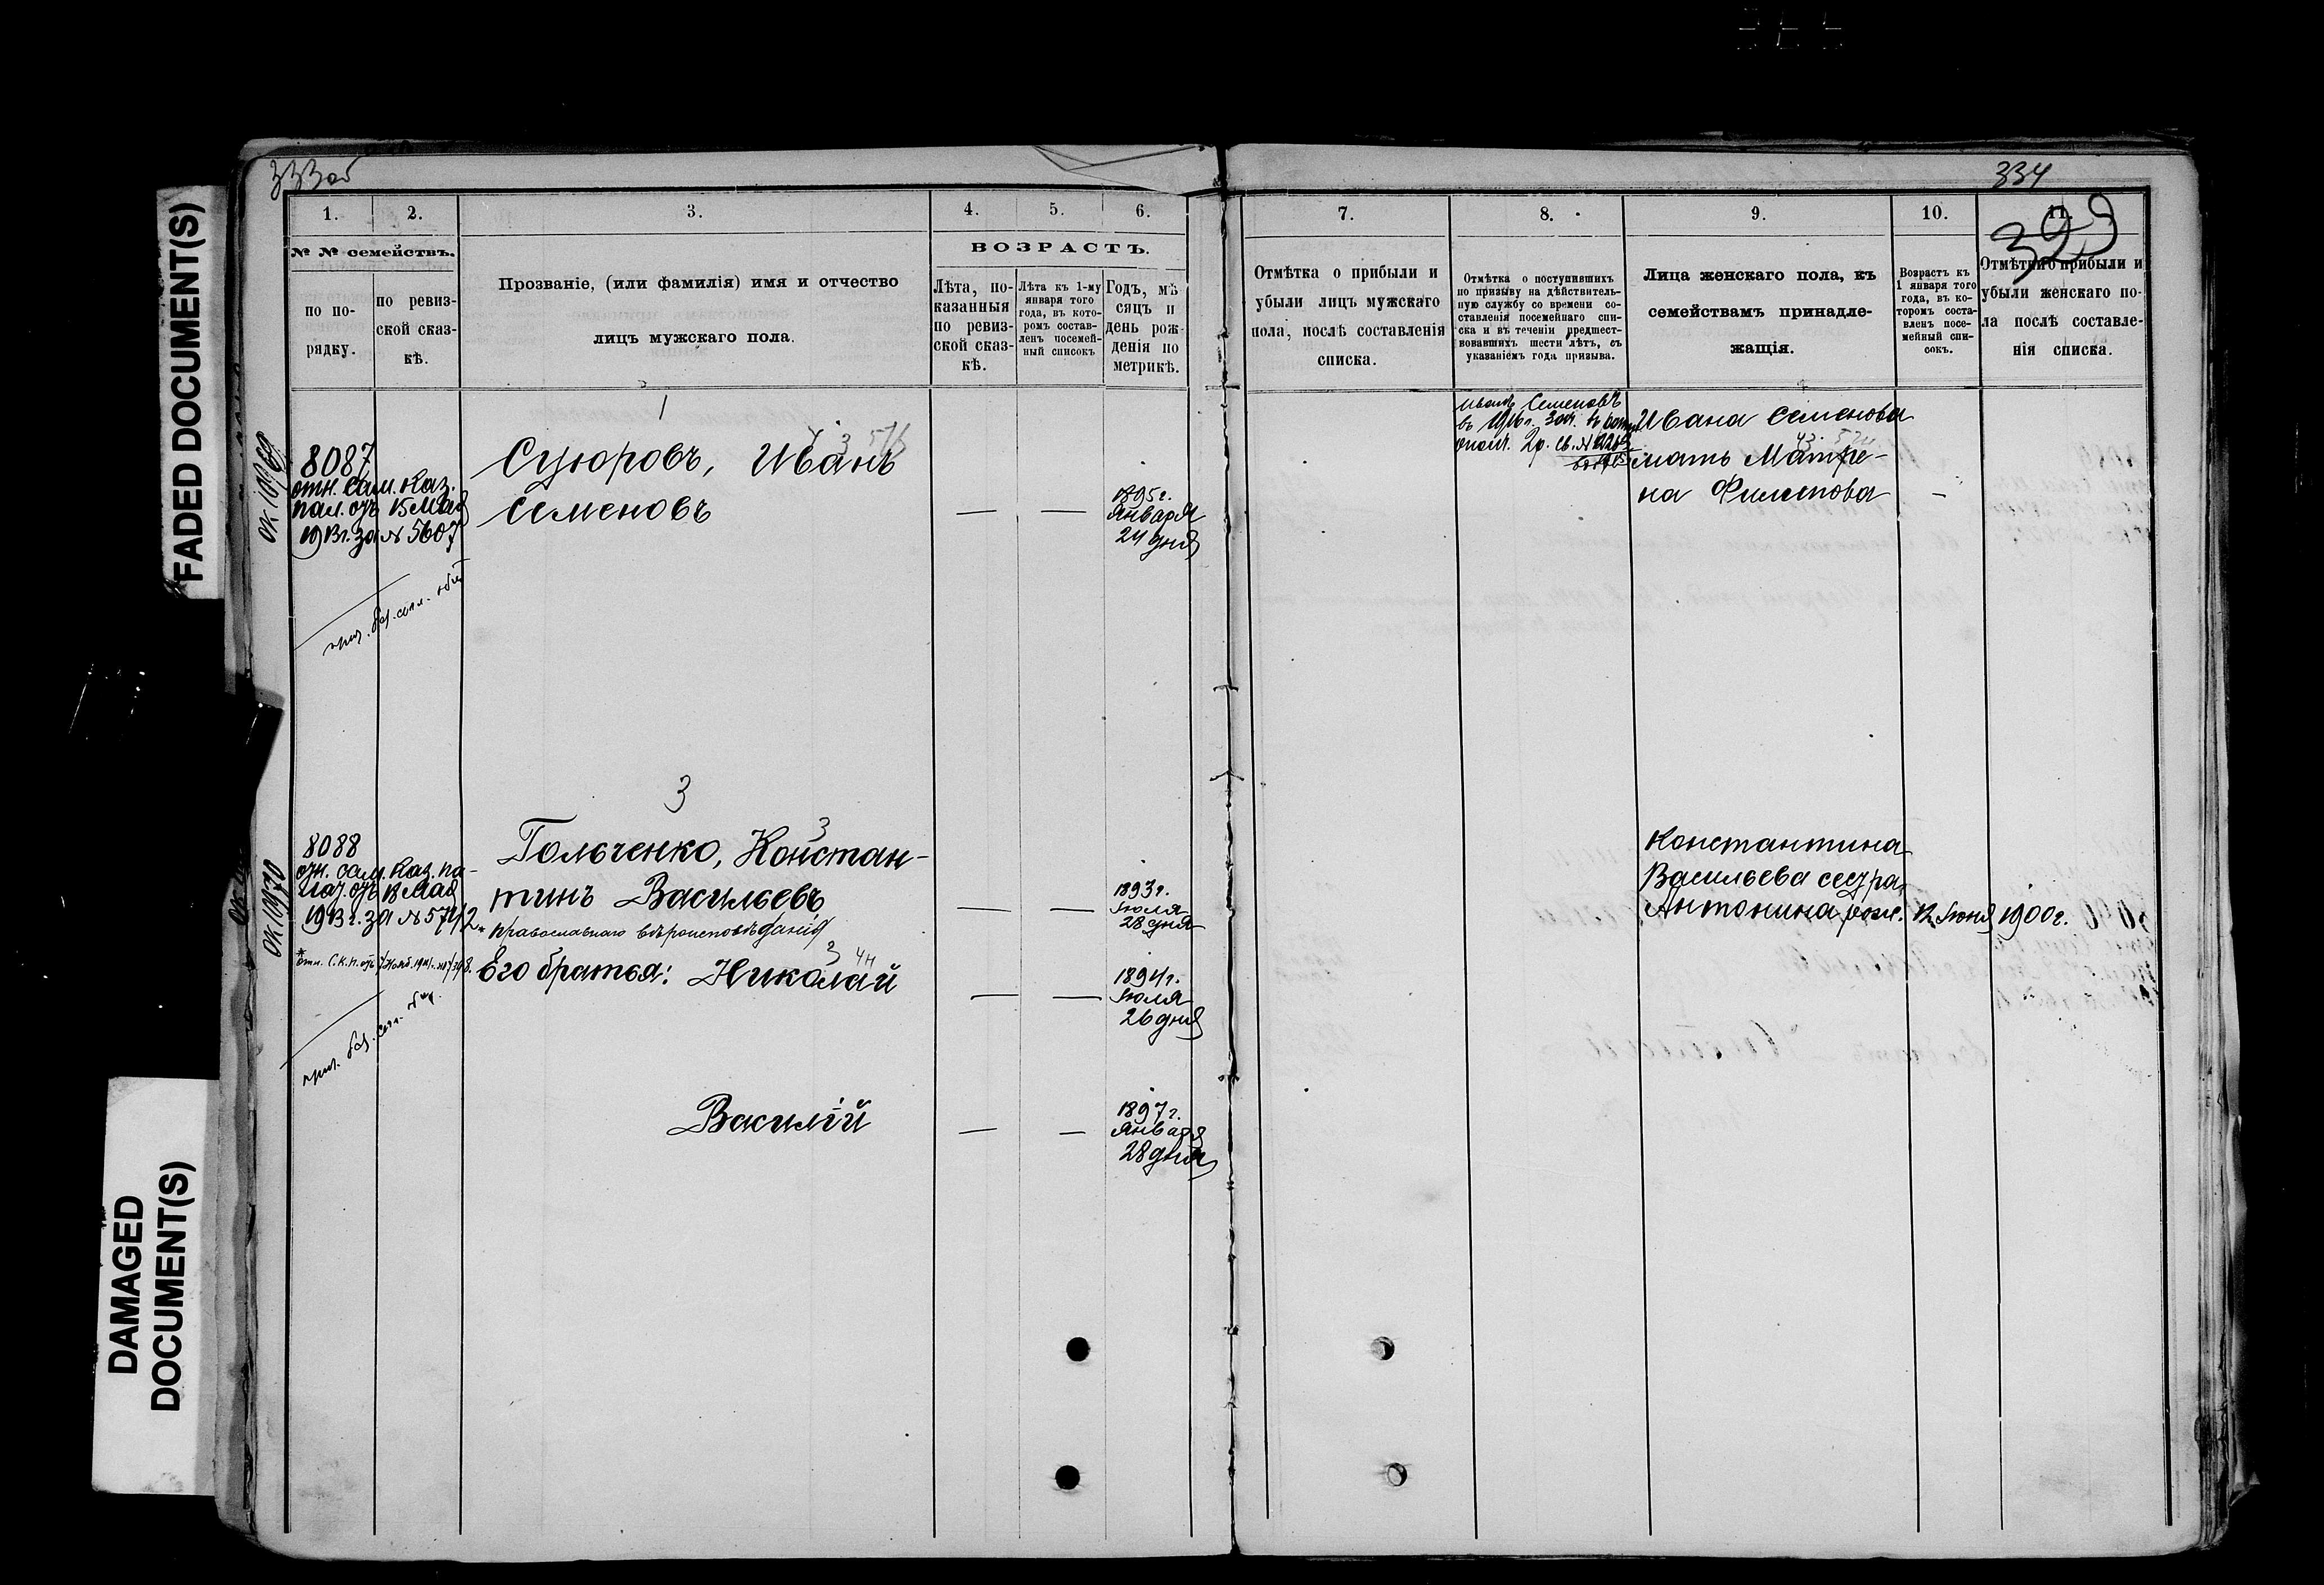 333об
334
399
FADED DOCUMENT(S)
DAMAGED
DOCUMENT(S)
1.
2.
3.
4.
5.
6.
7.
8.
9.
10.
11.
№ № семействъ.
по по-
рядку.
по ревиз-
ской сказ-
кѣ.
Прозваніе, (или фамилія) имя и отчество
лицъ мужскаго пола.
ВОЗРАСТЪ.
Лѣта, по-
казанныя
по ревиз-
ской сказ-
кѣ.
Лѣта къ 1-му
января того
года, въ кото-
ромъ состав-
ленъ посемей-
ный списокъ
Годъ, мѣ
сяцъ и
день рож-
денія по
метрикѣ.
Отмѣтка о прибыли и
убыли лицъ мужскаго
пола, послѣ составленія
списка.
Отмѣтка о поступившихъ
по призыву на дѣйствитель-
ную службу со времени со-
ставленія посемейнаго спи-
ска и въ теченіи предшест-
вовавшихъ шести лѣтъ, съ
указаніемъ года призыва.
Лица женскаго пола, къ
семействамъ принадле-
жащія.
Возрастъ къ
1 января того
года, въ ко-
торомъ соста-
вленъ посе-
мейный спи-
сокъ.
Отмѣтки о прибыли и
убыли женскаго по-
ла послѣ составле-
нія списка.
ок 10969
8087
отн. Сам. Каз.
пал. отъ 15 Мая
1913 г. за № 5607
1
Суюровъ, Иванъ
Семеновъ
— —
1895 г.
Января
24 дня
Иванъ Семеновъ
въ 1916 г. зач. въ рат.
ополч. 2 р.
Ивана Семенова
мать Матре-
на Филипова
—
ок 10970
8088
отн. Сам. Каз. па-
лат. отъ 18 Мая
1913 г. за № 5742
3
3
Гольченко, Констан-
тинъ Васильевъ
* православнаго вѣроисповѣданія
— —
1893 г.
Іюля
28 дня
Его братья: Николай
— —
1894 г.
Іюля
26 дня
Василій
— —
1897 г.
Января
28 дня
Константина
Васильева сестра
Антонина, рожд. 12 Іюня 1900 г.